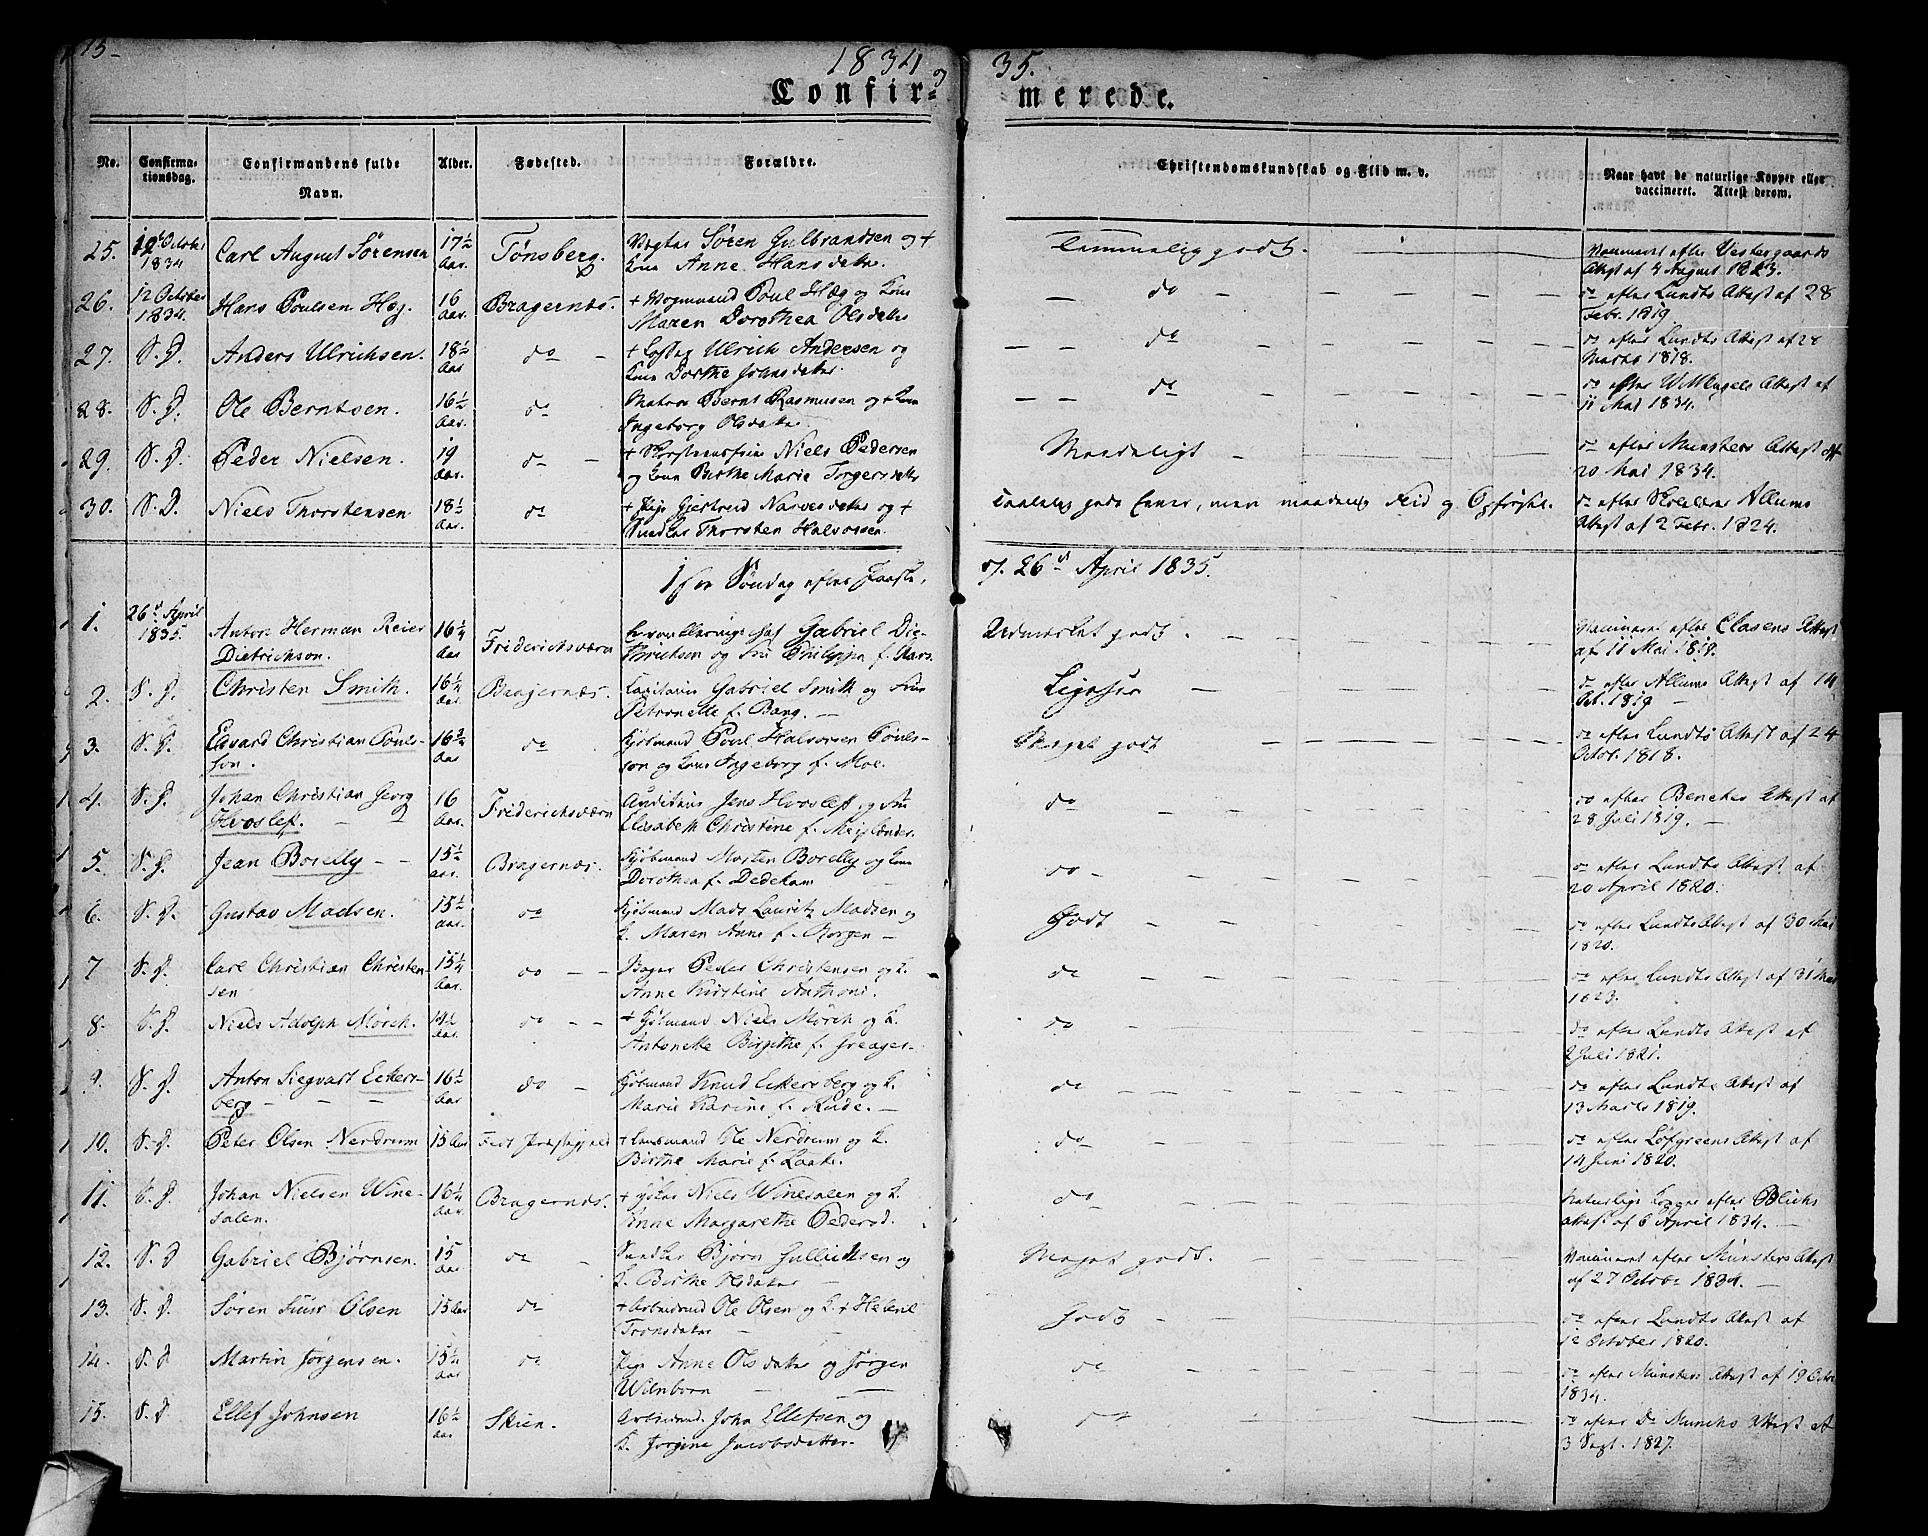 15-
1834 og 35.
Confir- merede.
No. Confirmationsdag. Confirmandens fulde Navn. Alder. Fødested. Forældre. Christendomskundskab og Flid m. v. Naar havt de naturlige Kopper eller vaccineret. Attest derom.
25. 12 October Carl August Sørensen 17½ Tønsberg. Søren Gulbrandsen og + Temmelig godt. Vaccineret efter Vestergaards
1834 Aar. Kone Anne Hansdatter. Attest af 4 August 1823.
26. 12 October Hans Poulsen Høg. 16 Bragernæs. + Vognmand Poul Høg og Kone do do efter Lundts Attest af 28
1834. Aar. Maren Dorothea Olsdatter Febr. 1819.
27. S. D. Anders Ulrichsen. 18½ do + Ulrich Andersen og do do efter Lundts Attest af 28
Aar Kone Dorthe Johnsdatter. Marts 1818.
28. S. D. Ole Berntsen. 16½ do Matros Bernt Rasmusen og + Kone do do efter Attest af
Aar. Ingeborg Olsdatter 11 Mai 1834.
29. S. D. Peder Nielsen. 19 do + Niels Pedersen Maadeligt do efter Munsters Attest af
Aar. og Kone Birthe Marie Torgersdatter 20 Mai 1834.
30. S. D. Niels Thorstensen 18½ do + Pige Gjertrud Narvesdatter og + godt Evner, men maadelig Flid og Opførsel. do efter Allums
Aar. Snedker Thorsten Halvorsen. Attest af 2 Febr. 1824.
1ste Søndag efter Paaske, d. 26de April 1835.
1. 26de April Anton Herman Reier 16¼ Friderichsværn Gabriel Die- Udmærket godt. Vaccineret efter Clasens Attest
1835. Dietrichson. Aar trichsen og Fru Philippa f. af 11 Mai 1819.
2. S. D. Christen Smith. 16¼ Bragernæs. Gabriel Smith og Fru Ligesaa do efter Allums Attest af 14
Aar Petronelle f. Bang. Oct. 1819
3. S. D. Edvard Christian Pouls- 16¾ do Kjøbmand Poul Halvorsen Pouls- Meget godt do efter Lundts Attest af 24
son. Aar son og Kone Ingeborg f. Moe. Octob. 1818.
4. S. D. Johan Christian Georg 16 Friderichsværn Auditeur Jens Hvoslef og Fru do do efter Beneks Attest af
Hvoslef. Aar. Elisabeth Christine f. Meislænder. 28 Juli 1819.
5. S. D. Jean Borelly 15½ Bragernæs. Kjøbmand Morten Borelly og Kone do do efter Lundts Attest af
Aar. Dorothea f. Dedekam 20 April 1820.
6. S. D. Gustav Madsen. 15½ do Kjøbmand Mads Lauritz Madsen og Godt do efter Lundts Attest af 30 Mai
Aar. K. Maren Anne f. Borgen 1820.
7 S. D. Carl Christian Christen- 15¼ do Bager Peder Christensen og K. do do efter Lundts Attest af 31 Mai
sen Aar. Anne Kirstine Anthoni. 1823.
8. S. D. Niels Adolph Mörch. 14½ do + Kjøbmand Niels Mörch og K. do do efter Lundts Attest af
Aar. Antonette Birgithe f. 2 Juli 1821.
9. S. D. Anton Siegvart Eckers- 16½ do Kjøbmand Knud Eckersberg og K. do do efter Lundts Attest af
berg Aar Marie Karine f. Rude. 13 Marts 1819.
10. S. D. Peter Olsen Nerdrum 15 Aar Fedt Præstegjeld + Ole Nerdrum og K. do do efter Löfgreens Attest af
Birthe Marie f. Kaake. 14 Juni 1820.
11. S. D. Johan Nielsen Wine- 16¼ Bragernæs. + Niels Winesalen og K. do Naturlige Kopper efter Blichs
salen. Aar. Anne Margarethe Pedersd. Attest af 6 April 1834.
12. S. D Gabriel Bjørnsen. 15 do Snedker Bjørn Gullichsen og Meget godt. Vaccineret efter Munsters Attest
Aar K. Birthe Olsdatter af 27 October 1834.
13. S. D. Søren Olsen 15 Aar do + Arbeidsmd Ole Olsen og K. Helene Godt do efter Lundts Attest af
Tronsdatter 12 October 1820.
14. S. D Martin Jørgensen. 15¼ do Pige Anne Olsdatter og Jørgen do do efter Munsters Attest af 19 Octr
Aar Wilnborn 1834.
15. S. D Ellef Johnsen 16½ Skien. Arbeidsmd. John Ellefsen og do do efter Dr Munchs Attest af
Aar K. Jørgine Jacobsdatter 3 Sept. 1827.